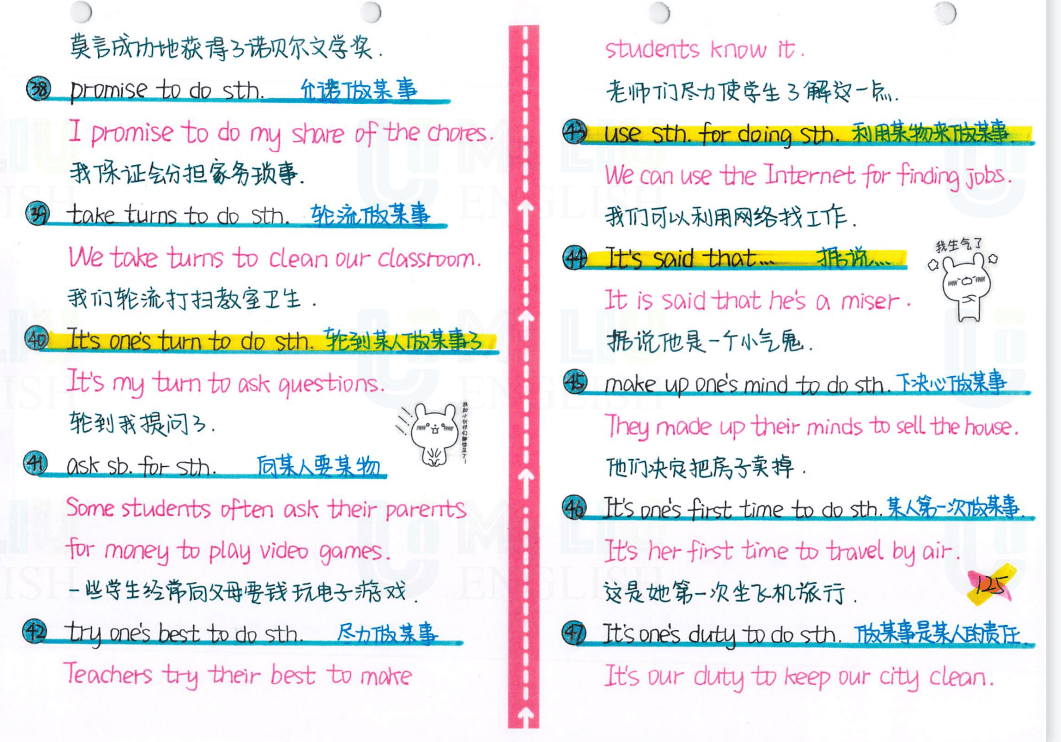 莫言成功地获得了诺贝尔文学奖.
38 promise to do sth. 允诺做某事
I promise to do my share of the chores.
我保证会分担家务琐事.
39 take turns to do sth. 轮流做某事
We take turns to clean our classroom.
我们轮流打扫教室卫生.
40 It's one's turn to do sth. 轮到某人做某事了
It's my turn to ask questions.
轮到我提问了.
41 ask sb. for sth. 向某人要某物
Some students often ask their parents
for money to play video games.
一些学生经常向父母要钱玩电子游戏.
42 try one's best to do sth. 尽力做某事
Teachers try their best to make
students know it.
老师们尽力使学生了解这一点.
43 use sth. for doing sth. 利用某物来做某事
We can use the Internet for finding jobs.
我们可以利用网络找工作.
44 It's said that... 据说...
我生气了
It is said that he's a miser.
据说他是一个小气鬼.
45 make up one's mind to do sth. 下决心做某事
They made up their minds to sell the house.
他们决定把房子卖掉.
46 It's one's first time to do sth. 某人第一次做某事.
It's her first time to travel by air.
这是她第一次坐飞机旅行.
125
47 It's one's duty to do sth. 做某事是某人的责任.
It's our duty to keep our city clean.